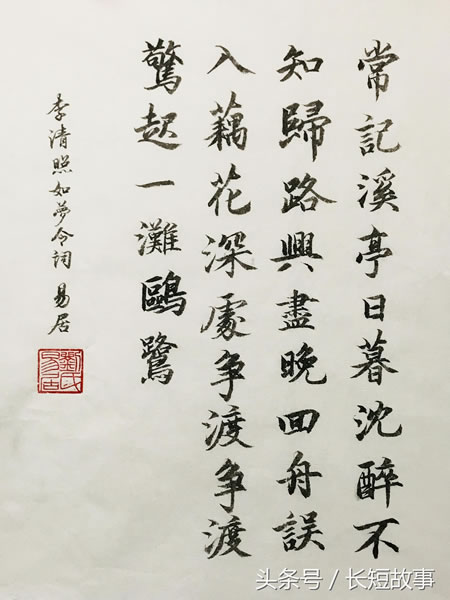 常記溪亭日暮沈醉不
知歸路興盡晚回舟誤
入藕花深處争渡争渡
驚起一灘鷗鷺
李清照如夢令詞 易居
頭条号 / 长短故事